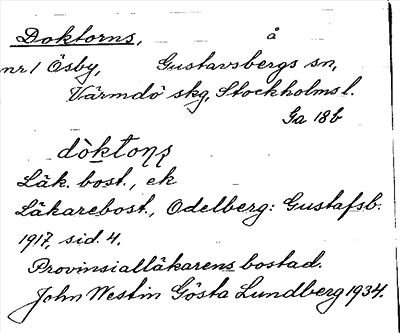 Doktorns, å
nr 1 Ösby, Gustavsbergs sn,
Värmdö skg, Stockholms l.
Ga 18b
dòktonȿ
Läk. bost., ek
Läkarebost., Odelberg: Gustafsb.
1917, sid. 4.
Provinsialläkarens bostad.
John Westin Gösta Lundberg 1934.